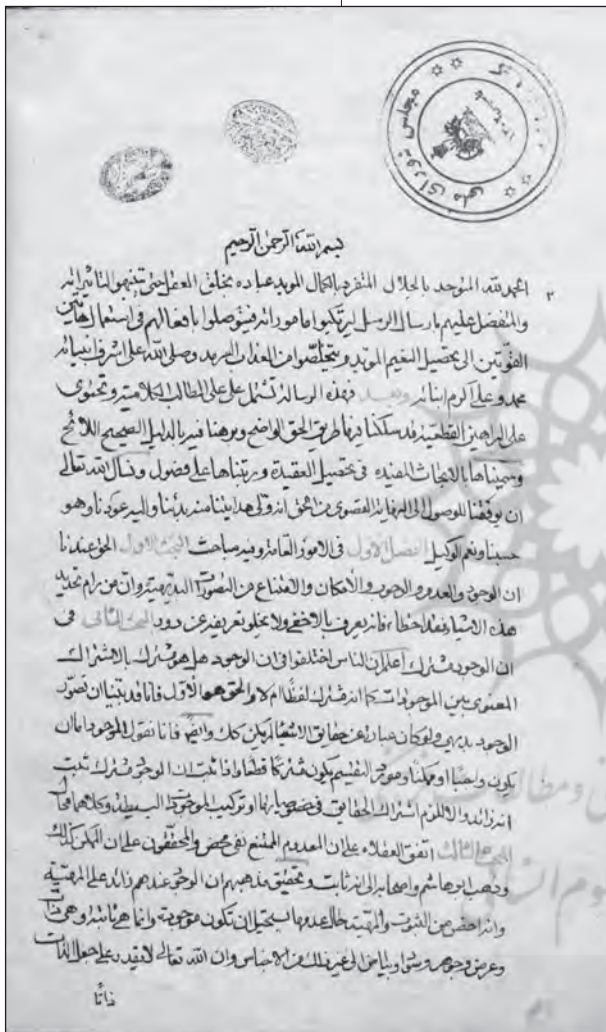 مجلس شورای ملی
بسم الله الرحمن الرحیم
الحمد لله المتوحد بالجلال المتفرد بالکمال الموید عباده بخلق العقل حتی
والمتفضل علیهم بارسال الرسل لیرتکبوا ما فیتوصلوا بافعالهم فی استعمال هاتین
القوتین الی تحصیل النعیم الموبد ویتخلصوا من العذاب السرمد وصلی الله علی اشرف انبیائه
محمد وعلی اکرم ابنائه وبعد فهذه الرسالة تشتمل علی المطالب الکلامیة وتحتوی
علی البراهین القطعیة قد سلکنا فیها طریق الحق الواضح وبرهنا فیه بالدلیل الصحیح اللائح
وسمیناها بالابحاث المفیده فی تحصیل العقیدة ورتبناها علی فصول ونسال الله تعالی
ان یوفقنا للوصول الی النهایة القصوی من الحق انه ولی هدایتنا منه بدئنا والیه عودنا وهو
حسبنا ونعم الوکیل الفصل الاول فی الامور العامة وفیه مباحث البحث الاول الحق عندنا
ان الوجود والعدم والوجوب والامکان والامتناع من التصورات البدیهیة وان من رام تحدید
هذه الاشیاء فقد اخطاء فانه یعرف بالاخفی ولا یخلو تعریفه عن دور البحث الثانی فی
ان الوجود مشترک اعلم ان الناس اختلفوا فی ان الوجود هل هو مشترک بالاشتراک
المعنوی بین الموجودات کلها ام مشترک لفظا ام لا والحق هو الاول فانا قد بینا ان تصور
الوجود بدیهی ولو کان عبارة عن حقایق الاشیاء لم یکن کک وایضا فانا نقول الموجود اما ان
یکون واجبا او ممکنا ومورد التقسیم یکون مشترکا قطعا واذا ثبت ان الوجود مشترک ثبت
انه زائد والا للزم اشتراک الحقایق فی خصوصیاتها او ترکیب الموجودات البسیطة وکلاهما محال
البحث الثالث اتفق العقلاء علی ان المعدوم الممتنع نفی محض والمحققون علی ان الممکن کذلک
وذهب ابو هاشم واصحابه الی انه ثابت وتحقیق مذهبهم ان الوجود عندهم زائد علی المهیة
وانه اخص من الثبوت والمهیة حال عدمها یستحیل ان تکون موجودة وانما هی ثابتة وهی ذات
وعرض وجوهر وسواد وبیاض الی غیر ذلک من الاجناس وان الله تعالی لا یقدر علی جعل الذات
ذاتا